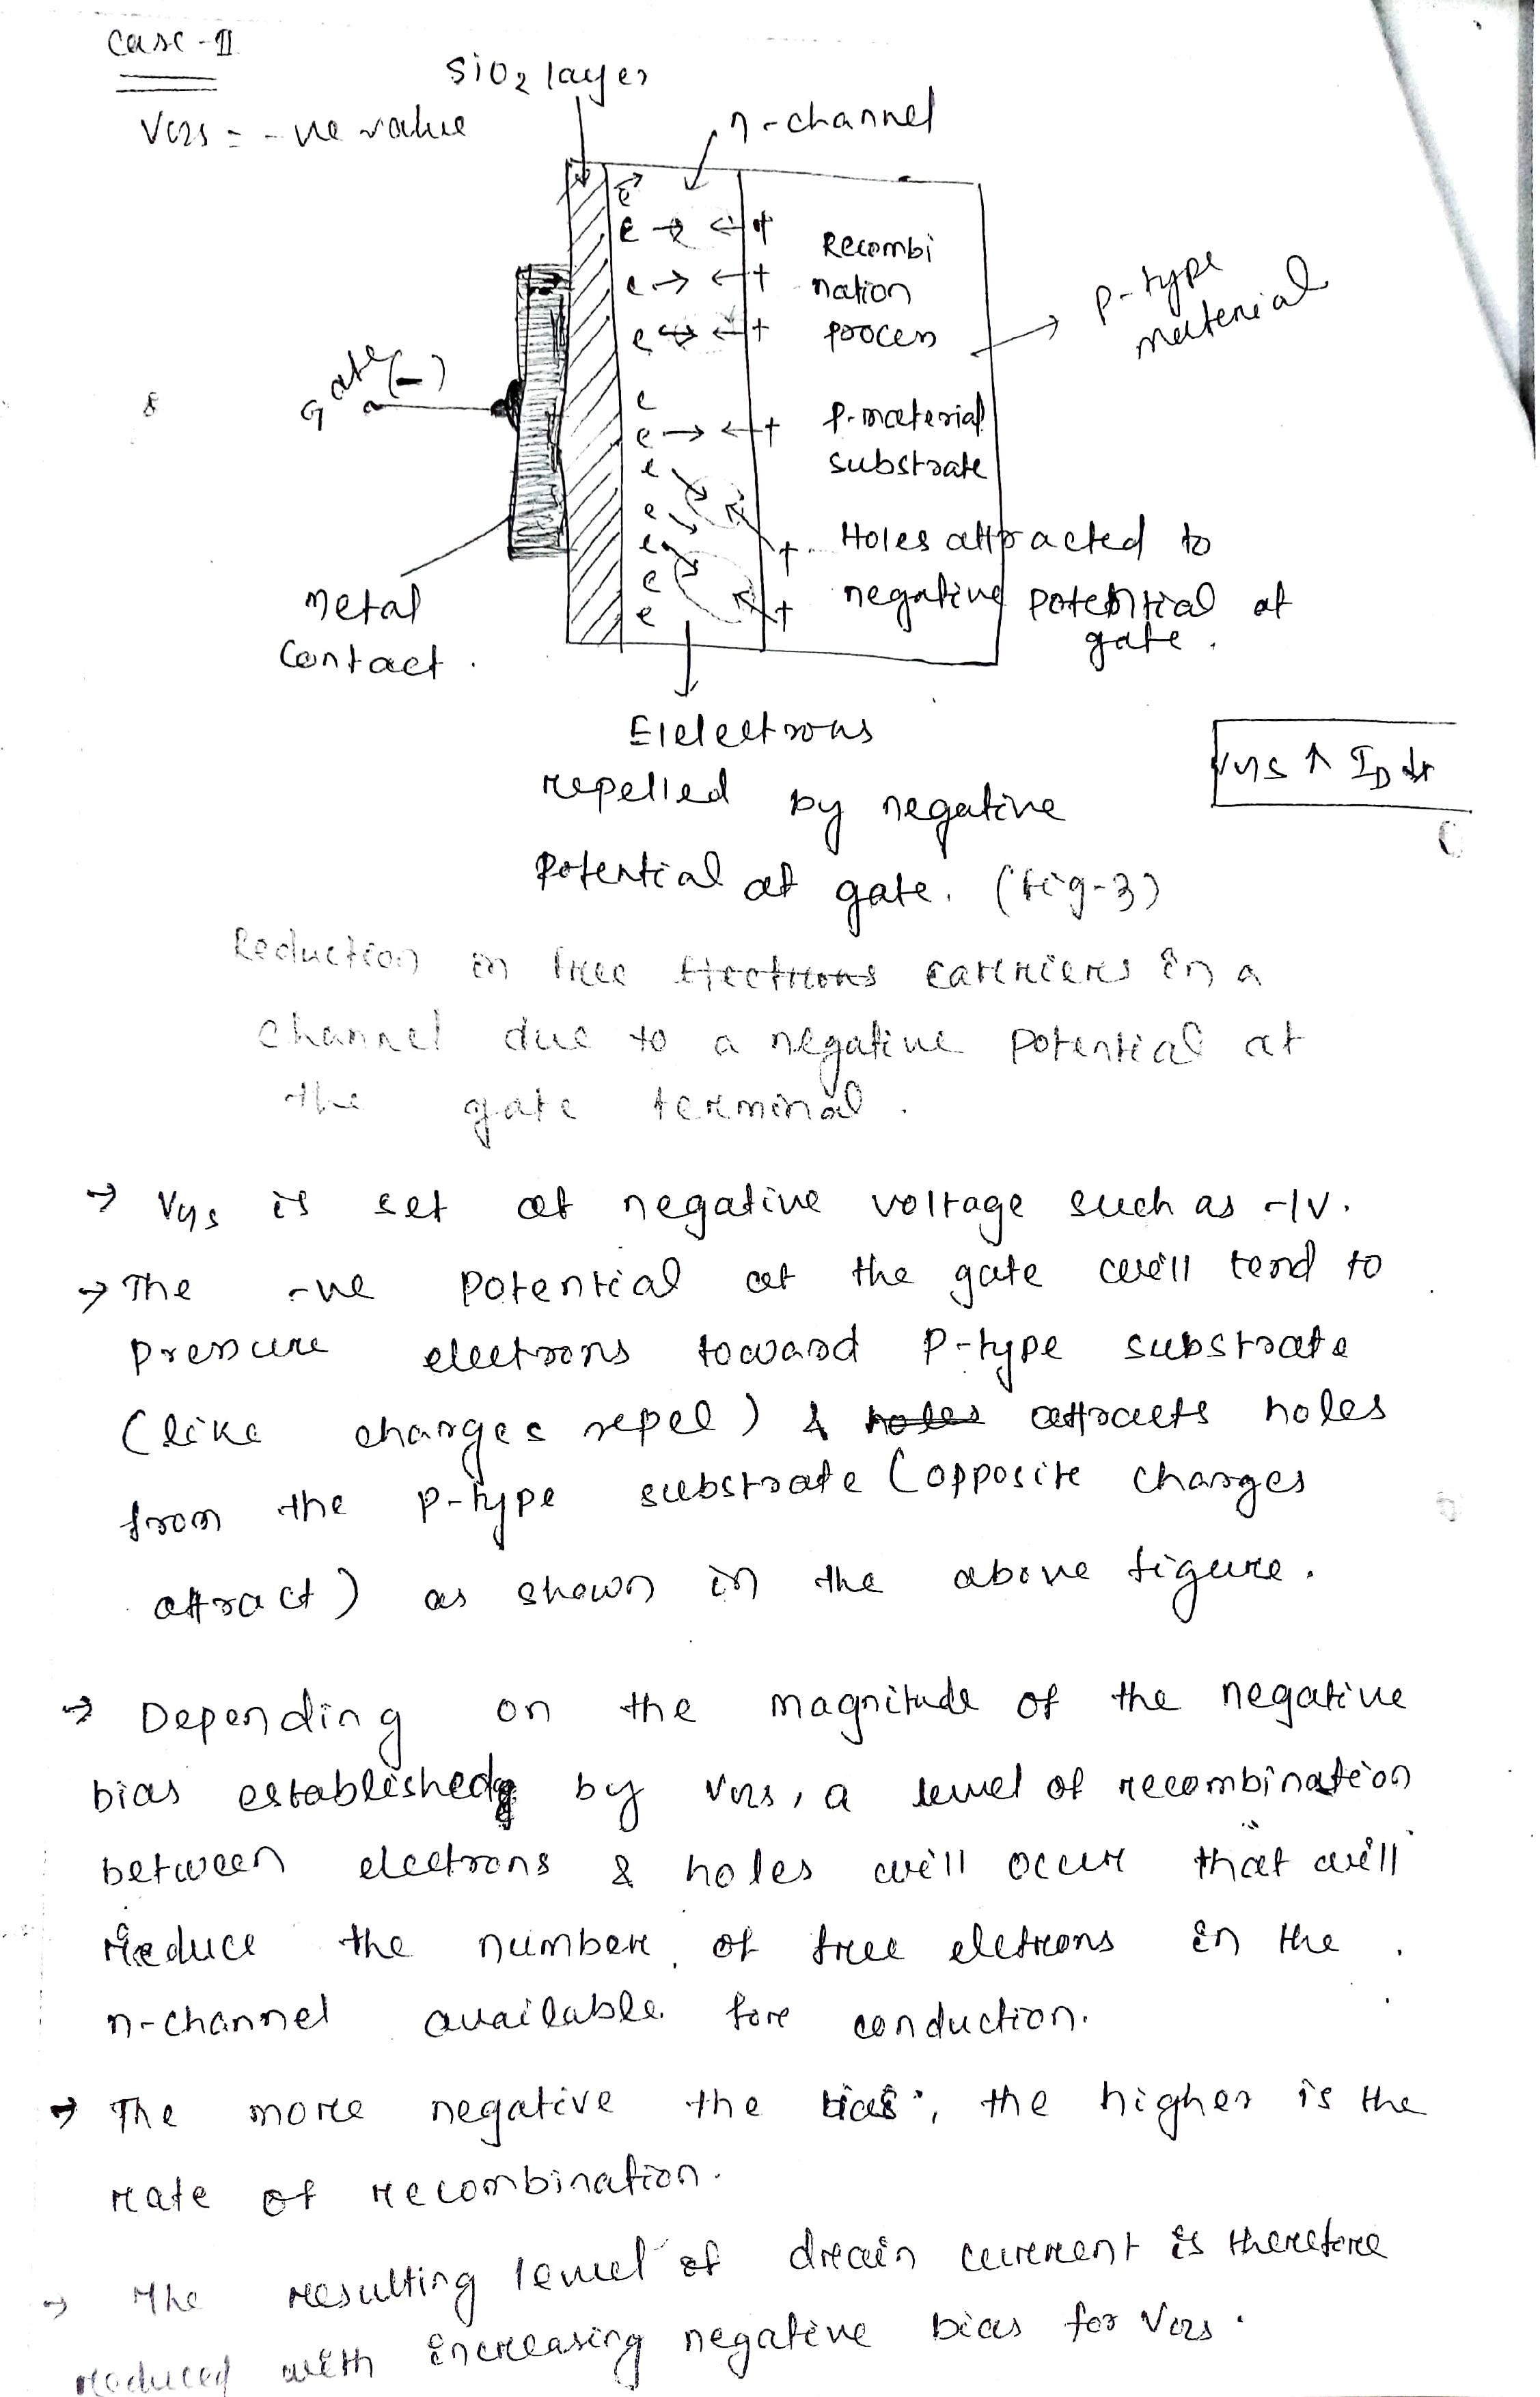 Case-II
VGS = -ve value
SiO2 layer
n-channel
e
e → ← +
e → ← +
e → ← +
e
e → ← +
e
e
e
e
e
+
+
Recombi
nation
process
P-material
substrate
Holes attracted to
negative potential at
gate.
P-type
material
Gate (-)
Metal
Contact.
Elelectrons
repelled by negative
Potential at gate. (fig-3)
VGS ↑ ID ↓
Reduction in free Electrons carriers in a
channel due to a negative potential at
the gate terminal.
→ VGS is set at negative voltage such as -1V.
→ The -ve potential at the gate will tend to
pressure electrons toward P-type substrate
(like charges repel) & holes attracts holes
from the p-type substrate (opposite charges
attract) as shown in the above figure.
→ Depending on the magnitude of the negative
bias established by VGS, a level of recombination
between electrons & holes will occur that will
reduce the number of free eletrons in the
n-channel available for conduction.
→ The more negative the bias, the higher is the
rate of recombination.
→ The resulting level of drain current is therefore
reduced with increasing negative bias for VGS.